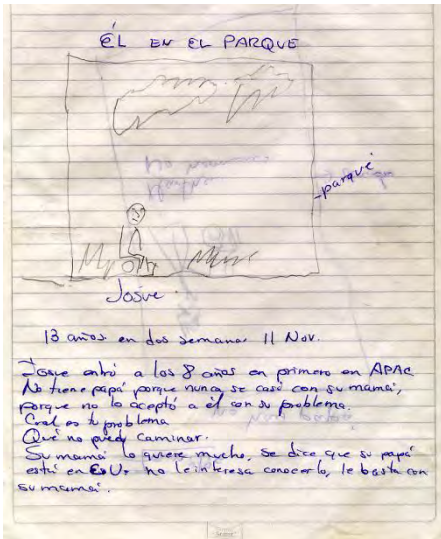 ÉL EN EL PARQUE
parque
Josue
13 años en dos semanas 11 Nov.
Josue entró a los 8 años en primero en APAC
No tiene papá porque nunca se casó con su mamá,
porque no lo aceptó a él con su problema.
Cual es tu problema
Que no puedo caminar.
Su mamá lo quiere mucho, se dice que su papá
está en EU. no le interesa conocerlo, le basta con
su mamá.